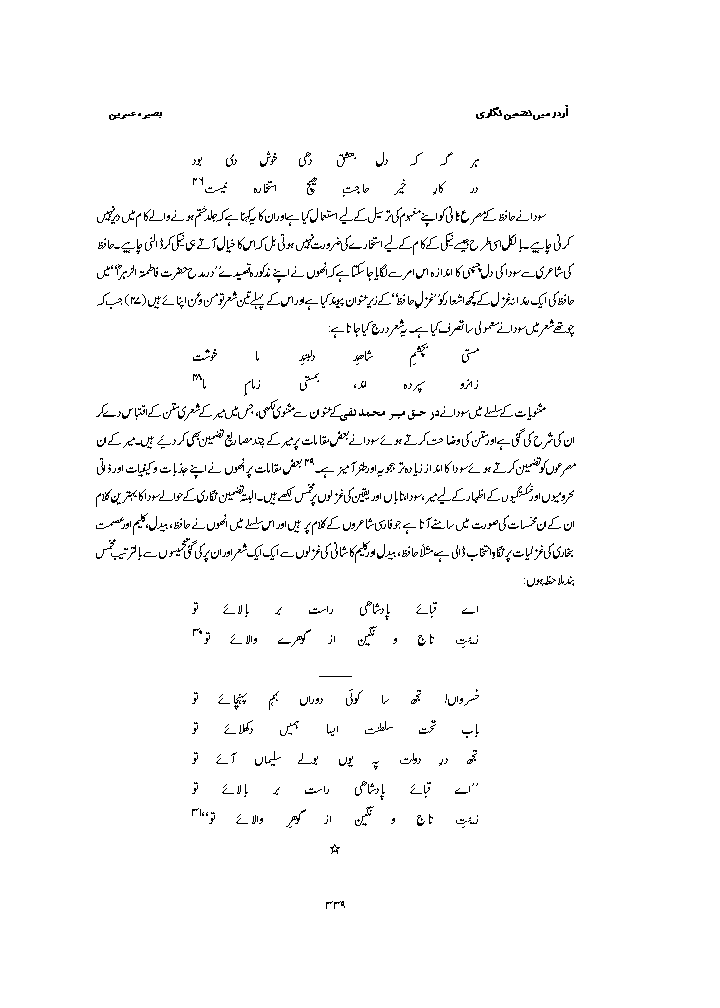 اُردو میں تضمین نگاری
بصیرہ عنبرین
ہر گہ کہ دل بعشق دہی خوش دمی بود
در کارِ خیر حاجتِ ہیچ استخارہ نیست۲۶
سودا نے حافظ کے مصرع ثانی کو اپنے مفہوم کی ترسیل کے لیے استعمال کیا ہے اور ان کا یہ کہنا ہے کہ جلد ختم ہونے والے کام میں دیر نہیں
کرنی چاہیے۔ بالکل اسی طرح جیسے نیکی کے کام کے لیے استخارے کی ضرورت نہیں ہوتی بل کہ اس کا خیال آتے ہی نیکی کر ڈالنی چاہیے۔ حافظ
کی شاعری سے سودا کی دل چسپی کا اندازہ اس امر سے لگایا جا سکتا ہے کہ انھوں نے اپنے مذکورہ قصیدے ’’در مدح حضرت فاطمتہ الزہراؓ‘‘ میں
حافظ کی ایک رندانہ غزل کے کچھ اشعار کو ’’غزلِ حافظ‘‘ کے زیرِ عنوان پیوند کیا ہے اور اس کے پہلے تین شعر تو من و عن اپنائے ہیں (۲۷) جب کہ
چوتھے شعر میں سودا نے معمولی سا تصرف کیا ہے۔ یہ شعر درج کیا جاتا ہے:
مستی بچشمِ شاہدِ دلبندِ ما خوشت
زانرو سپردہ اند، بمستی زمامِ ما۲۸
مثنویات کے سلسلے میں سودا نے در حق میر محمد تقی کے عنوان سے مثنوی لکھی، جس میں میر کے شعری متن کے اقتباس دے کر
ان کی شرح کی گئی ہے اور متن کی وضاحت کرتے ہوئے سودا نے بعض مقامات پر میر کے چند مصاریع تضمین بھی کر دیے ہیں۔ میر کے ان
مصرعوں کو تضمین کرتے ہوئے سودا کا انداز زیادہ تر ہجویہ اور طنز آمیز ہے۔۲۹ بعض مقامات پر انھوں نے اپنے جذبات و کیفیات اور ذاتی
محرومیوں اور خستگیوں کے اظہار کے لیے میر، سودا، تاباں اور یقین کی غزلوں پر مخمس لکھے ہیں۔ البتہ تضمین نگاری کے حوالے سے سودا کا بہترین کلام
ان کے ان مخمسات کی صورت میں سامنے آتا ہے جو فارسی شاعروں کے کلام پر ہیں اور اس سلسلے میں انھوں نے حافظ، بیدل، کلیم اور عصمت
بخاری کی غزلیات پر نگاہِ انتخاب ڈالی ہے، مثلاً حافظ، بیدل اور کلیم کاشانی کی غزلوں سے ایک ایک شعر اور ان پر کی گئی تخمیسوں سے بالترتیب مخمس
بند ملاحظہ ہوں:
اے قبائے پادشاہی راست بر بالائے تو
زینتِ تاج و نگین از گوہرے والائے تو۳۰
خسرواں! تجھ سا کوئی دوراں بہم پہنچائے تو
بابِ تحت سلطنت ایسا ہمیں دکھلائے تو
تجھ درِ دولت پہ یوں بولے سلیماں آئے تو
’’اے قبائے پادشاہی راست بر بالائے تو
زینتِ تاج و نگین از گوہرِ والائے تو‘‘۳۱
☆
۳۳۹